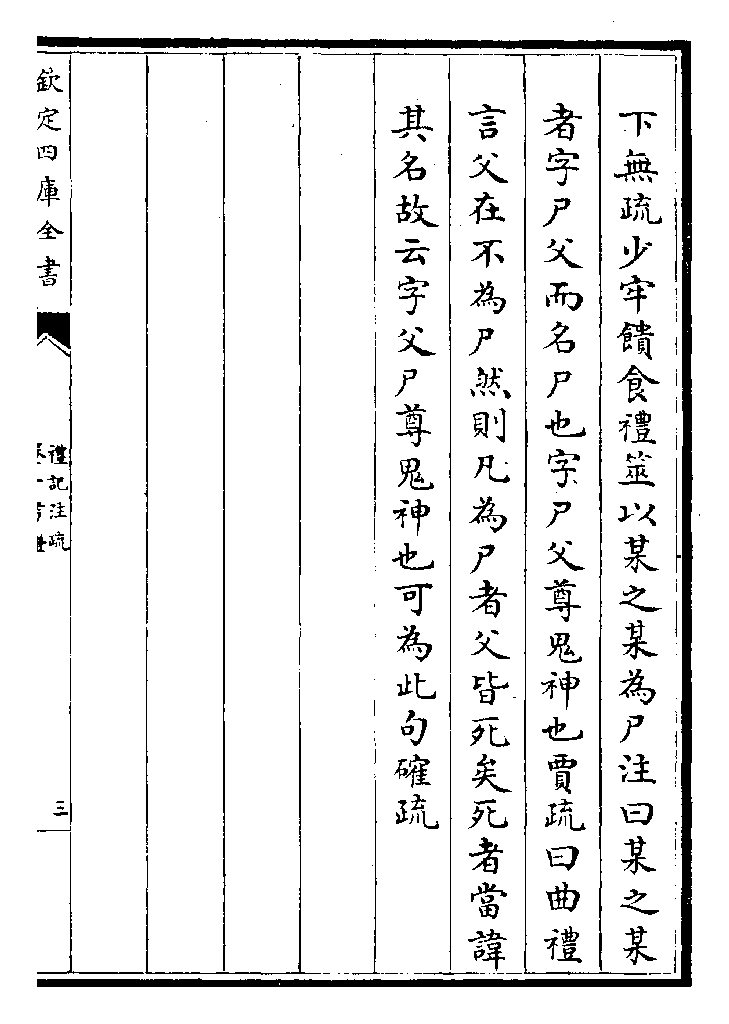 下無疏少牢饋食禮筮以某之某為尸注曰某之某
者字尸父而名尸也字尸父尊鬼神也賈疏曰曲禮
言父在不為尸然則凡為尸者父皆死矣死者當諱
其名故云字父尸尊鬼神也可為此句確疏
欽定四庫全書
禮記注疏
三